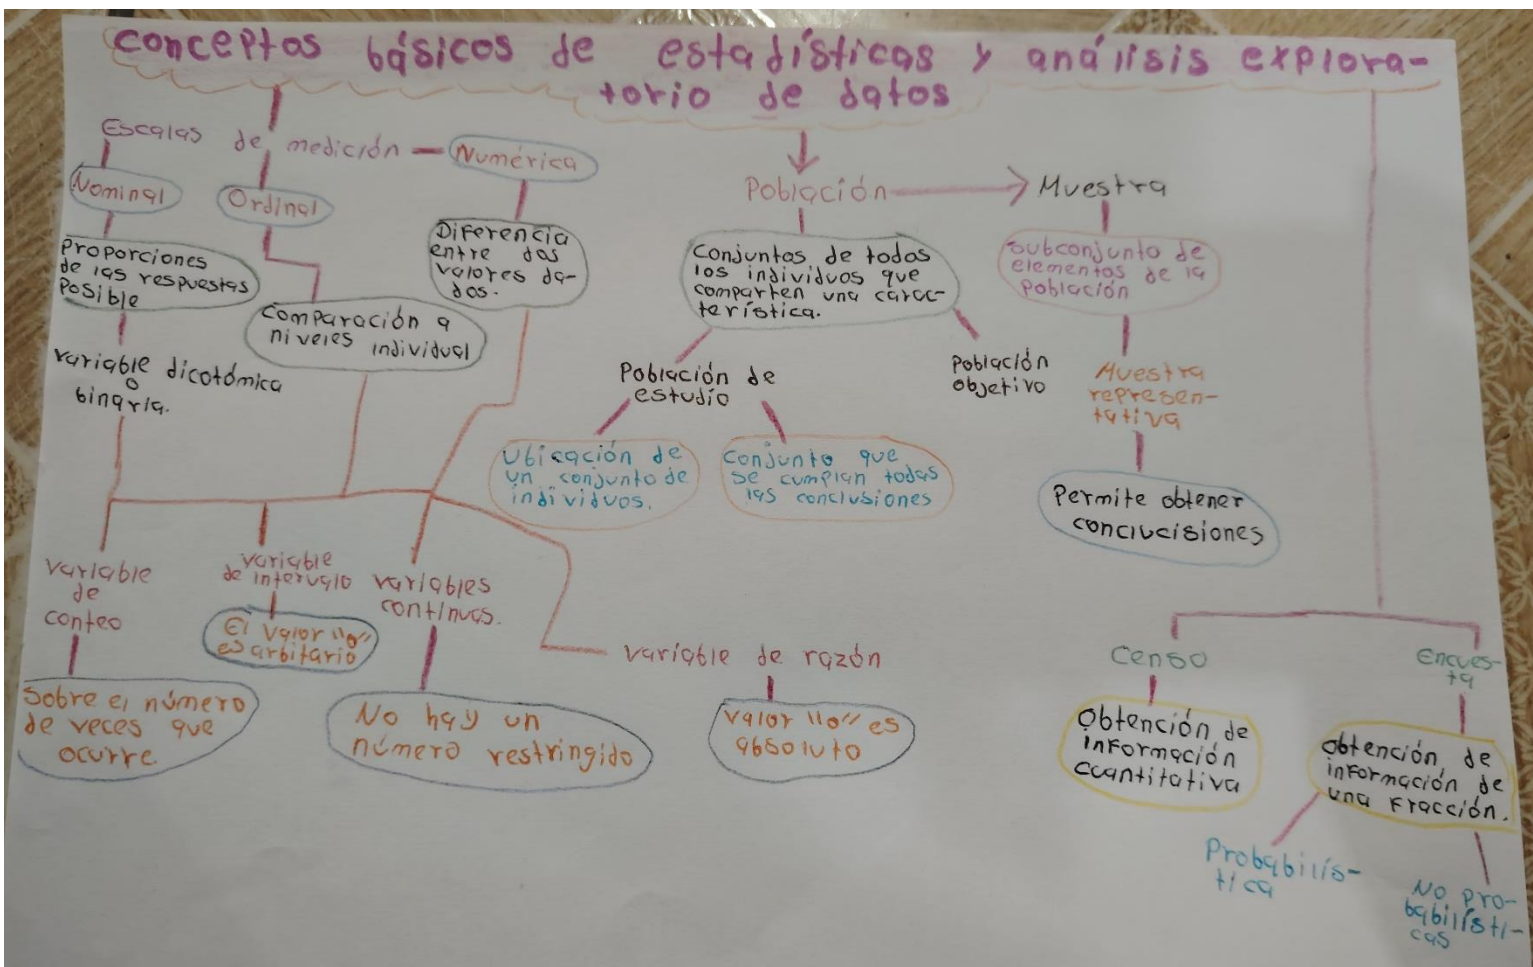 conceptos básicos de estadísticas y análisis explora-
torio de datos
Escalas de medición
Numérica
Nominal
Ordinal
Proporciones
de las respuestas
Posible
Comparación a
niveles individual
Diferencia
entre dos
valores da-
dos.
variable dicotómica
o
binaria.
variable
de
conteo
Sobre el número
de veces que
ocurre.
variable
de intervalo
El valor "o"
es arbitario
variables
continuas.
No hay un
número restringido
variable de razón
valor "o" es
absoluto
Población
Conjuntos de todas
los individuos que
comparten una carac-
terística.
Población de
estudio
Ubicación de
un conjunto de
individuos.
Conjunto que
se cumplan todas
las conclusiones
Población
objetivo
Muestra
subconjunto de
elementos de la
Población
Muestra
represen-
tativa
Permite obtener
conclucisiones
Censo
Obtención de
información
cuantitativa
Encues-
ta
obtención de
información de
una Fracción.
Probabilís-
tica
No pro-
babilísti-
cas